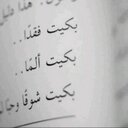 بكيت فقدًا..
بكيت ألمًا..
بكيت شوقًا